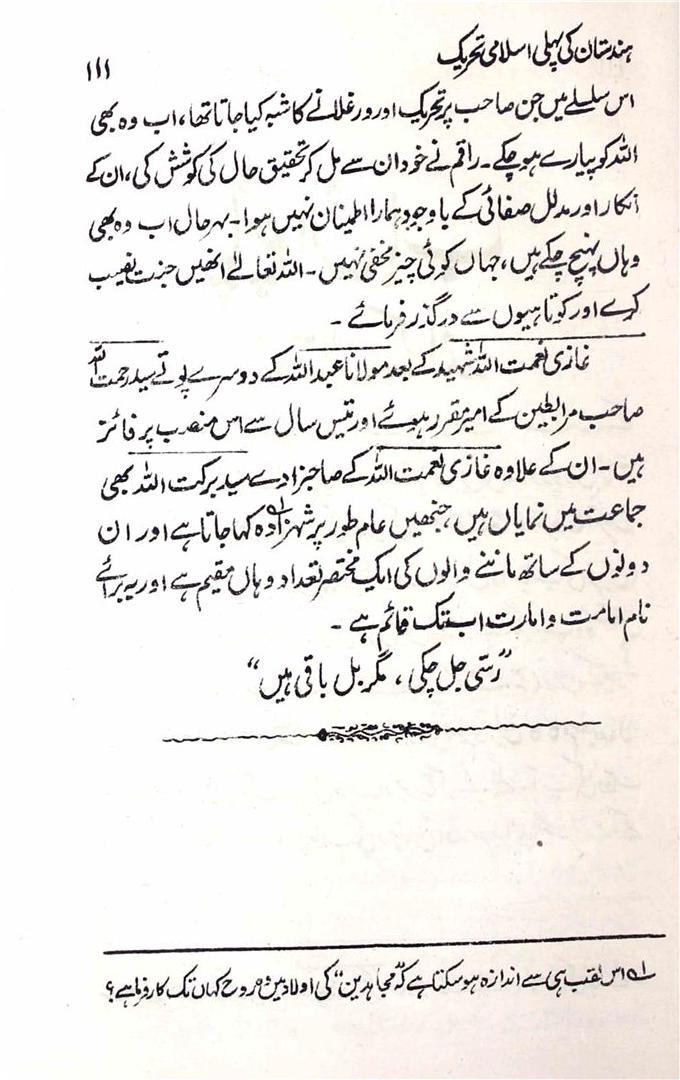 ہندستان کی پہلی اسلامی تحریک
۱۱۱
اس سلسلے میں جن صاحب پر تحریک اور ورغلانے کا شبہ کیا جاتا تھا، اب وہ بھی
اللہ کو پیارے ہو چکے۔ راقم نے خود ان سے مل کر تحقیق حال کی کوشش کی، ان کے
انکار اور مدلل صفائی کے باوجود ہمارا اطمینان نہیں ہوا۔ بہر حال اب وہ بھی
وہاں پہنچ چکے ہیں، جہاں کوئی چیز مخفی نہیں۔ اللہ تعالےٰ انھیں جنت نصیب
کرے اور کوتاہیوں سے درگذر فرمائے۔
غازی نعمت اللہ شہید کے بعد مولانا عبد اللہ کے دوسرے پوتے سید رحمت اللہ
صاحب مرابطین کے امیر مقرر ہوئے اور تیس سال سے اس منصب پر فائز
ہیں۔ ان کے علاوہ غازی نعمت اللہ کے صاحبزادے سید برکت اللہ بھی
جماعت میں نمایاں ہیں، جنھیں عام طور پر شہزادہ۱ کہا جاتا ہے اور ان
دونوں کے ساتھ ماننے والوں کی ایک مختصر تعداد وہاں مقیم ہے اور یہ برائے
نام امامت و امارت اب تک قائم ہے۔
”رسّی جل چکی، مگر بل باقی ہیں“
۱ اس لقب ہی سے اندازہ ہو سکتا ہے کہ ”مجاہدین“ کی اولاد میں وہ روح کہاں تک کارفرما ہے؟